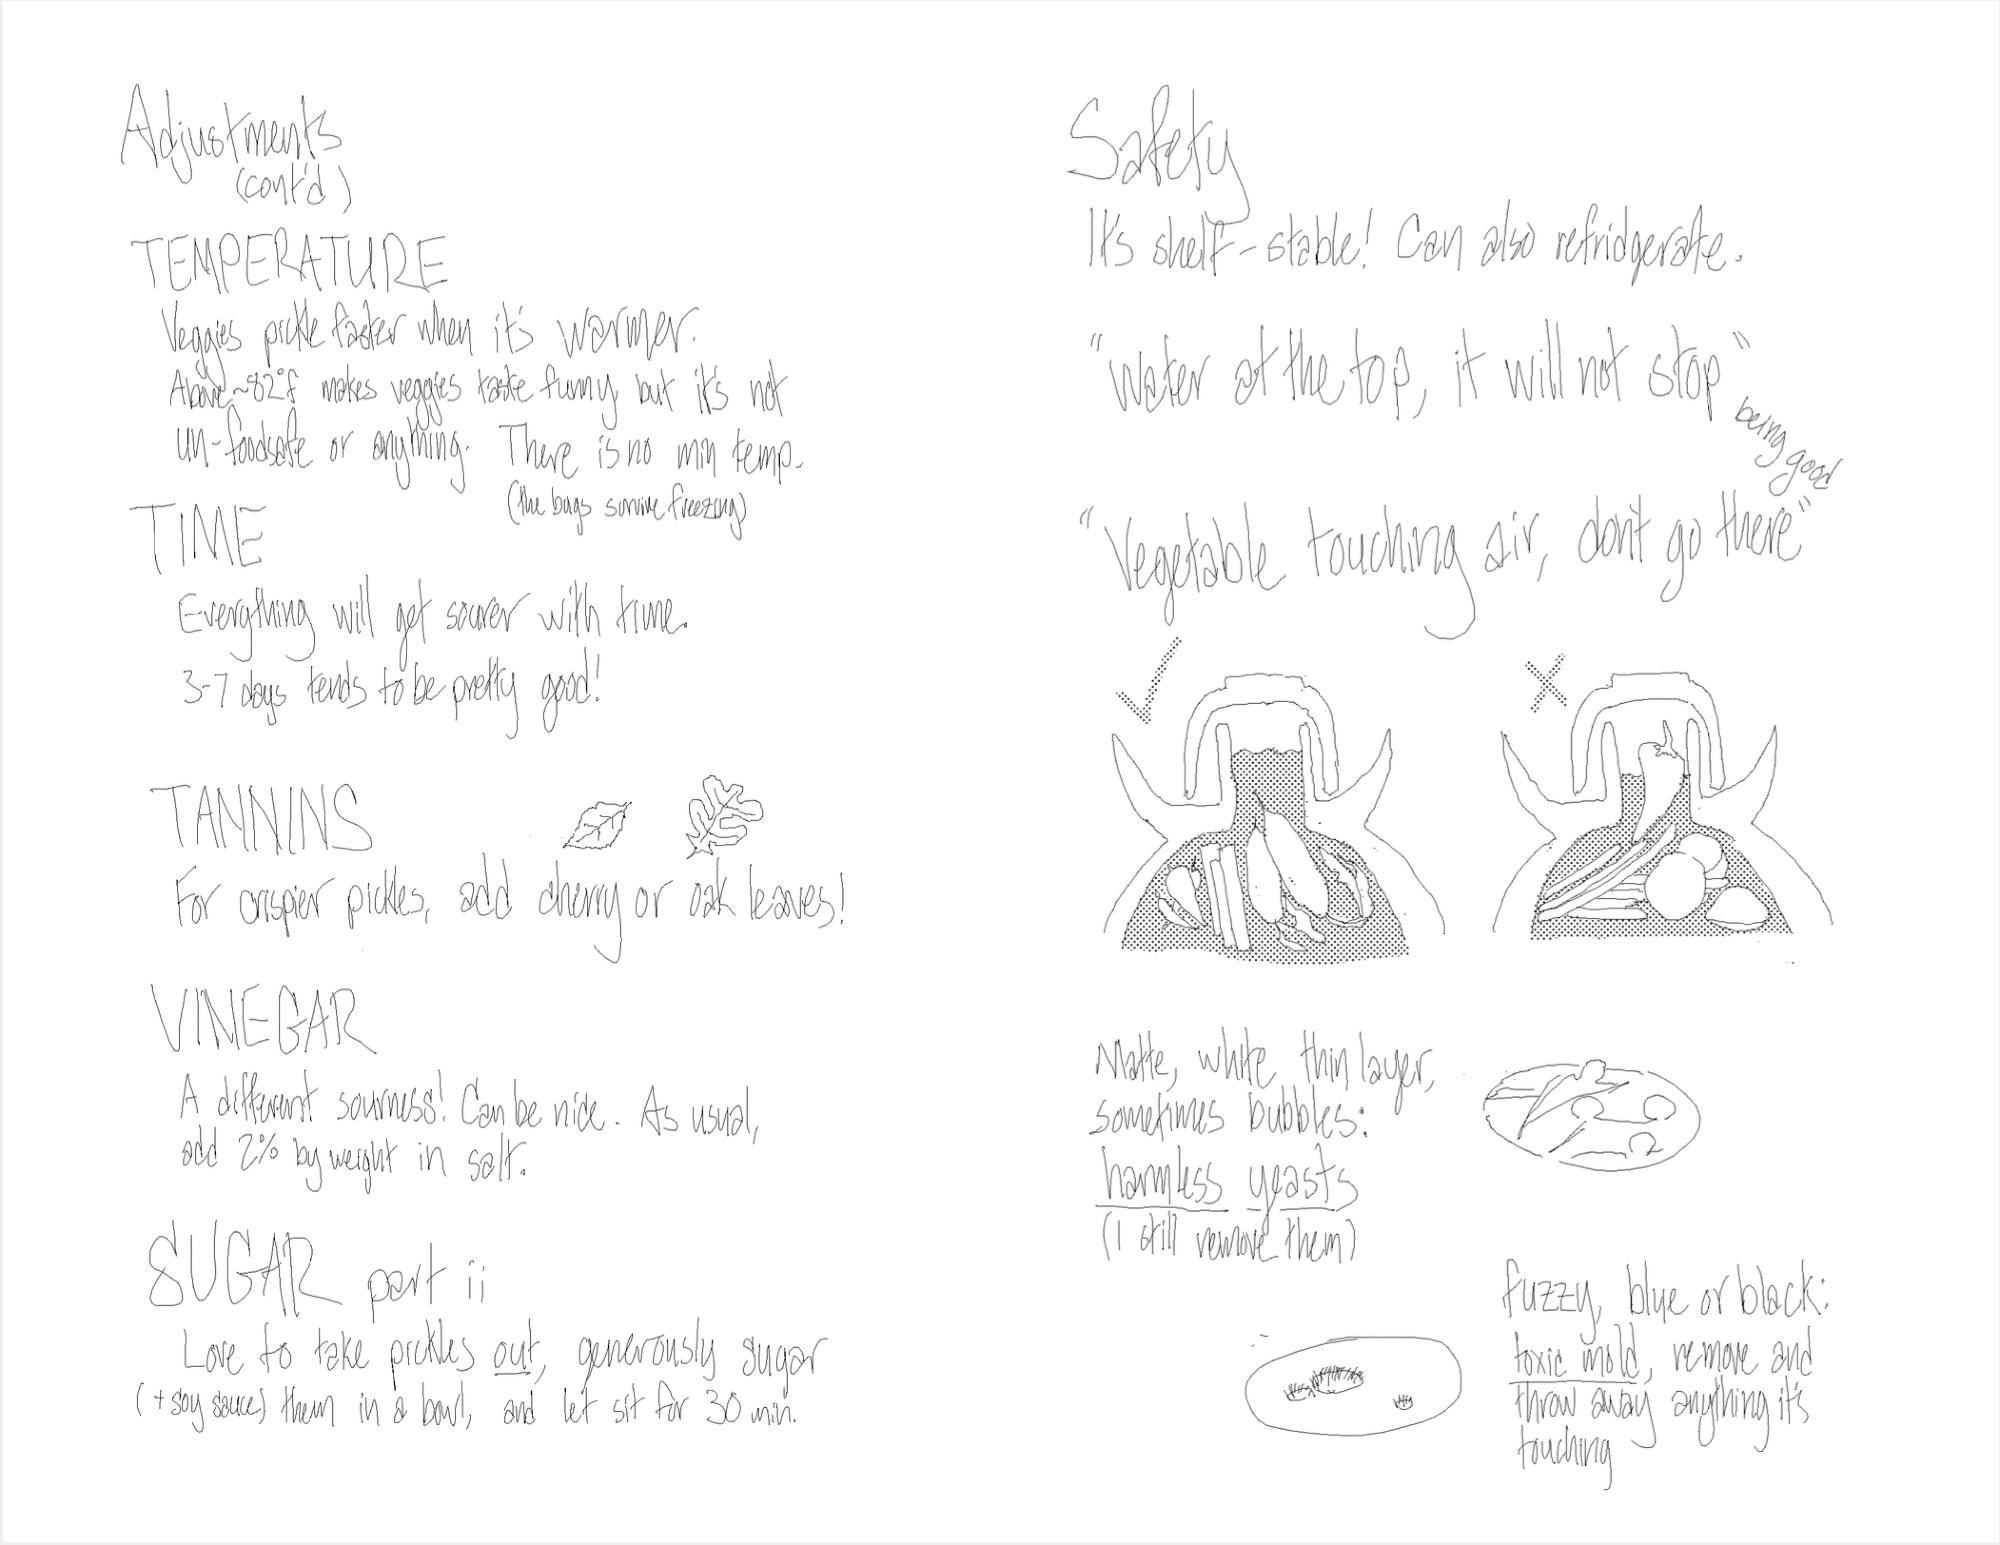 Adjustments
(cont'd)
TEMPERATURE
Veggies pickle faster when it's warmer.
Above ~82°f makes veggies taste funny, but it's not
un-foodsafe or anything. There is no min temp.
(the bugs survive freezing)
TIME
Everything will get sourer with time.
3-7 days tends to be pretty good!
TANNINS
For crispier pickles, add cherry or oak leaves!
VINEGAR
A different sourness! Can be nice. As usual,
add 2% by weight in salt.
SUGAR part ii
Love to take pickles out, generously sugar
(+ soy sauce) them in a bowl, and let sit for 30 min.
Safety
It's shelf-stable! Can also refridgerate.
"water at the top, it will not stop"
being good
"Vegetable touching air, don't go there"
Matte, white thin layer,
sometimes bubbles:
harmless yeasts
(I still remove them)
fuzzy, blue or black:
toxic mold, remove and
throw away anything it's
touching